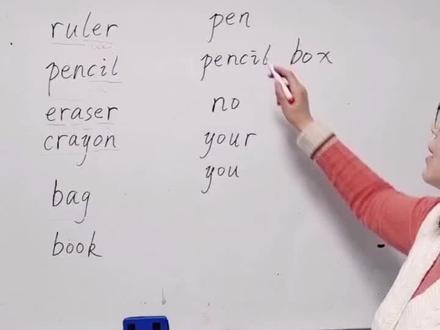 ruler
pencil
eraser
crayon
bag
book
pen
pencil box
no
your
you